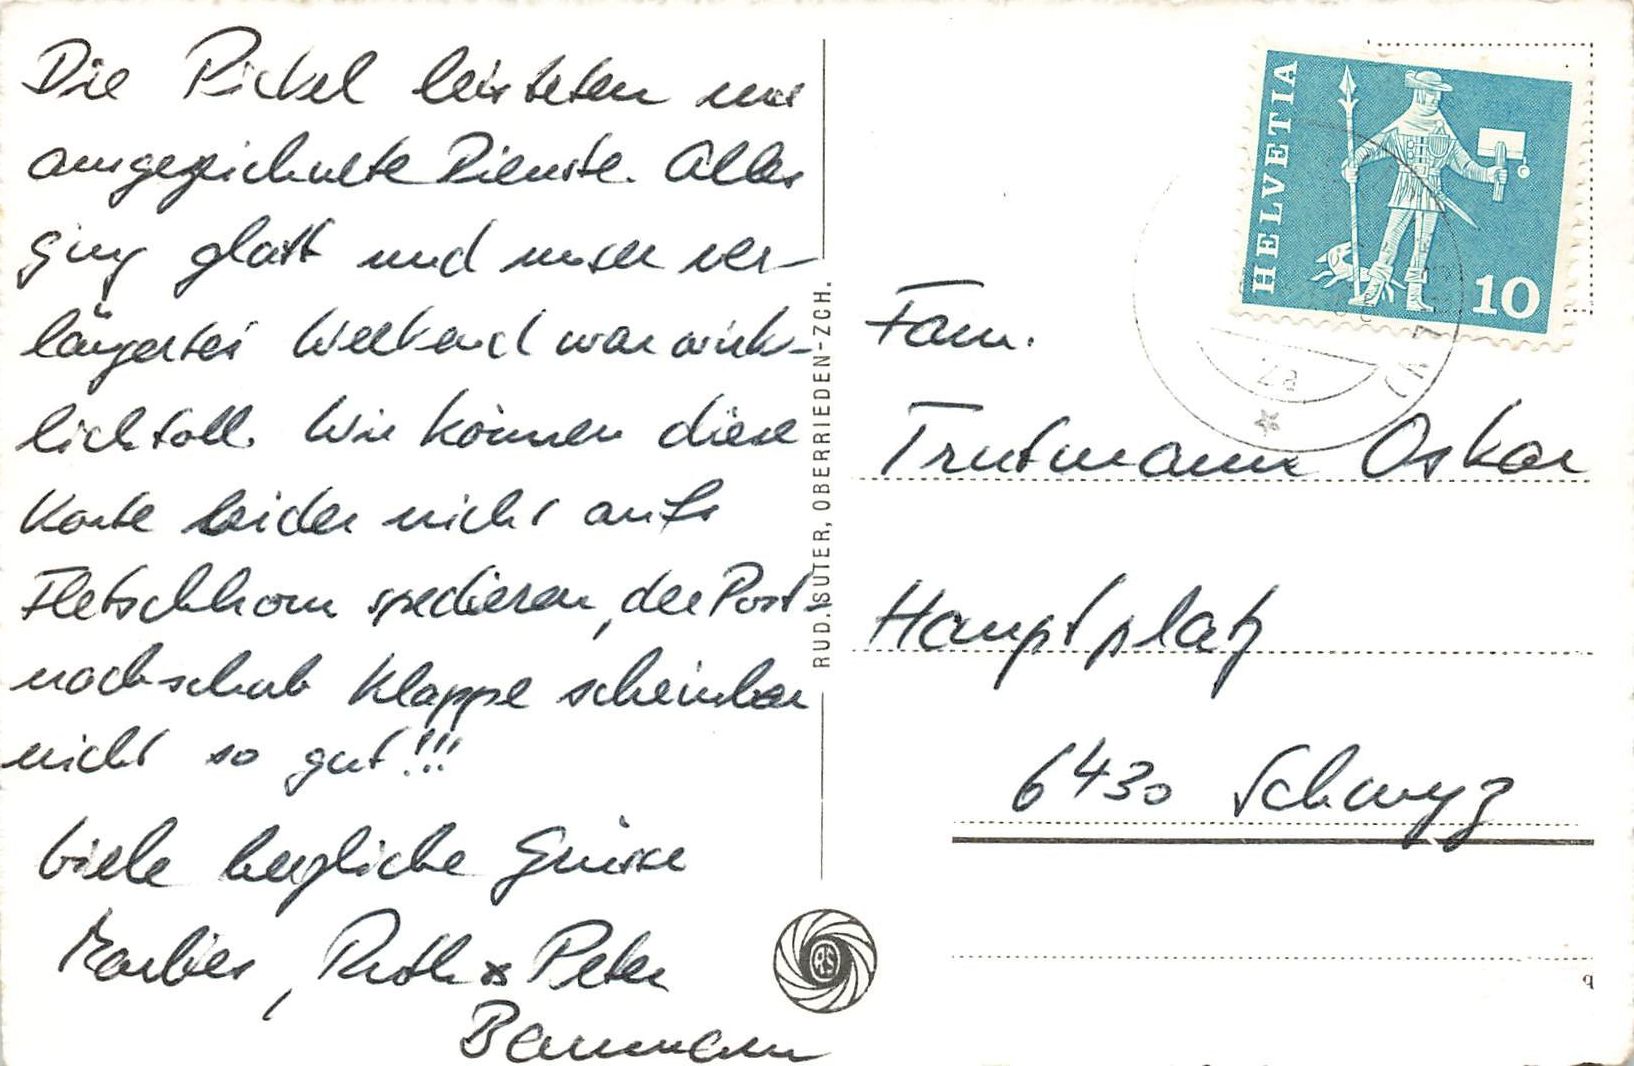 Die Pickel leisteten uns
ausgezeichnete Dienste. Alles
ging glatt und unser ver-
längertes Weekend war wirk-
lich toll. Wir können diese
Karte leider nicht aufs
Fletschhorn spedieren, der Post-
nachschub klappe scheinbar
nicht so gut!!!
Viele herzliche Grüsse
Marlies, Ruth & Peter
Baumann
RUD. SUTER, OBERRIEDEN-ZCH.
RS
HELVETIA
10
2a
Fam.
Trutmann Oskar
Hauptplatz
6430 Schwyz
q